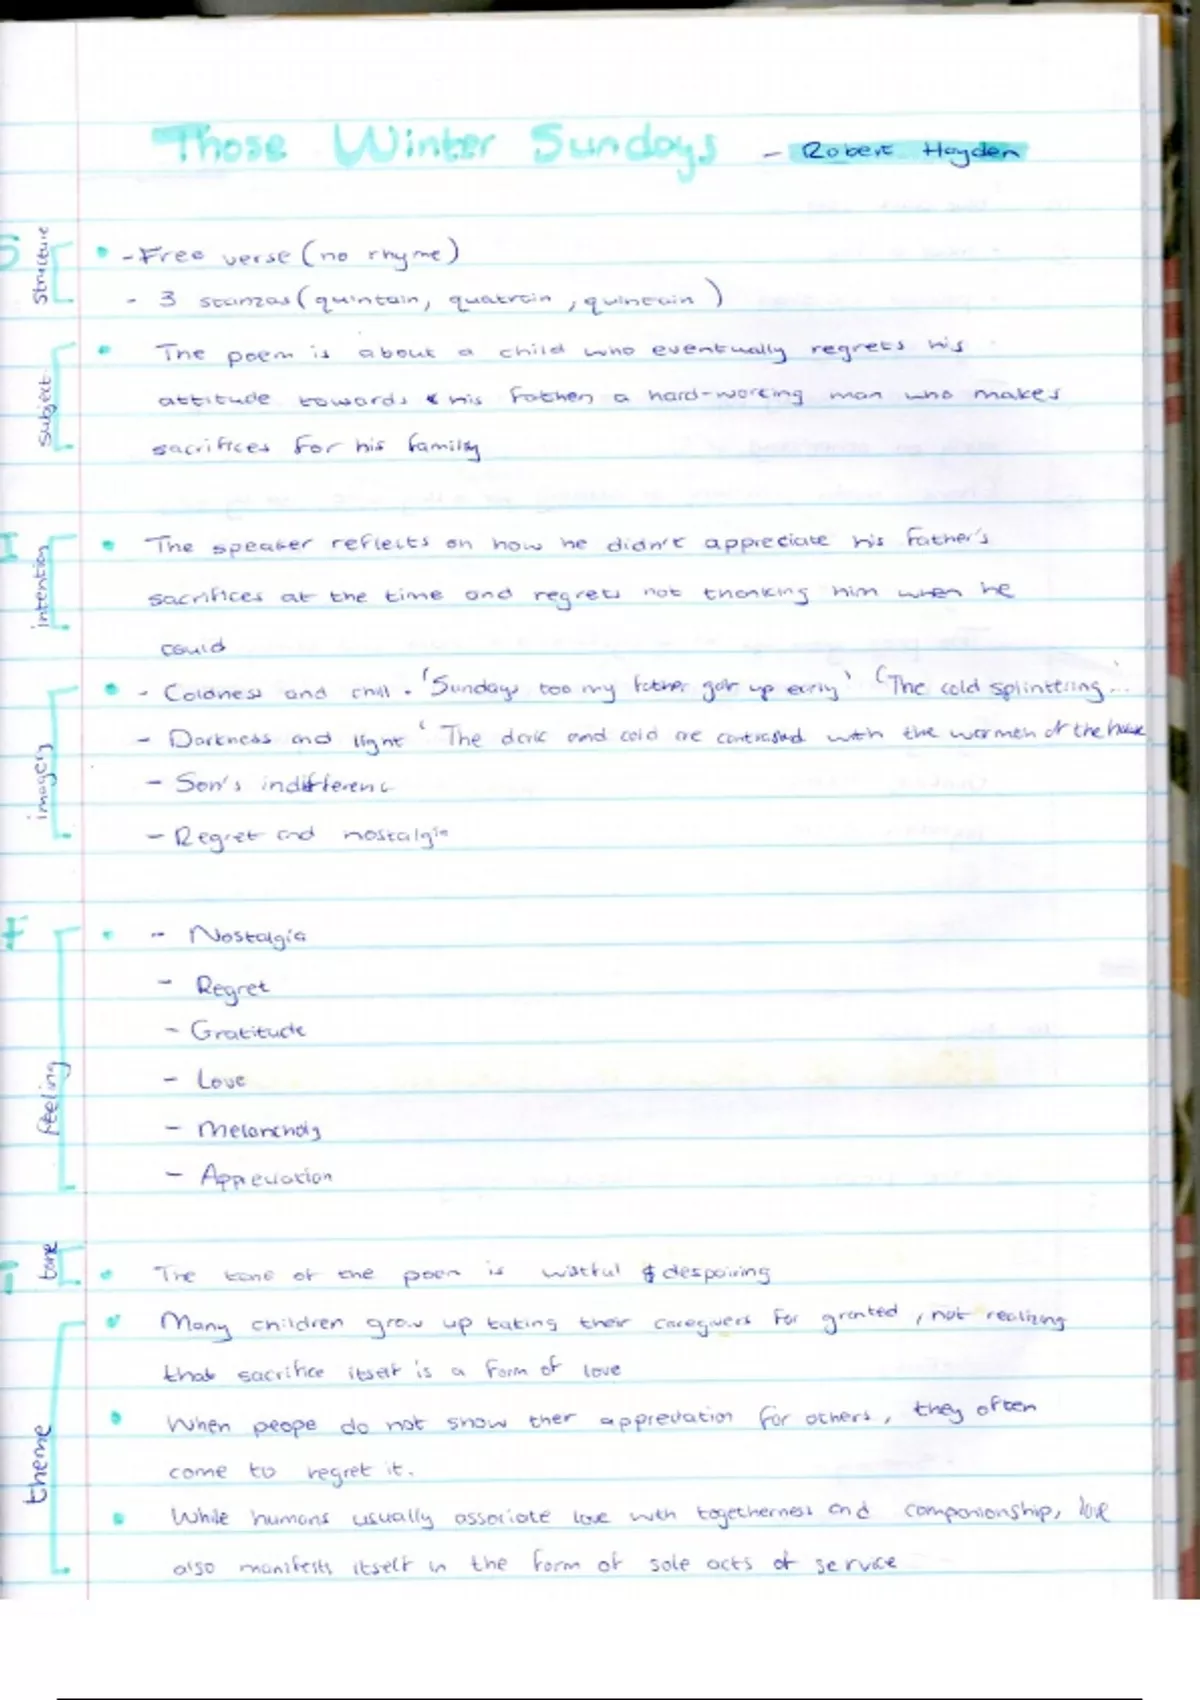 Those Winter Sundays - Robert Hayden
S
structure
- Free verse (no rhyme)
- 3 stanzas (quintain, quatrain, quintain)
subject
The poem is about a child who eventually regrets his
attitude towards his father, a hard-working man who makes
sacrifices for his family
I
intention
The speaker reflects on how he didn't appreciate his father's
sacrifices at the time and regrets not thanking him when he
could
imagery
- Coldness and chill. 'Sundays too my father got up early' 'The cold splintering...
- Darkness and light ' The dark and cold are contrasted with the warmth of the house
- Son's indifferenc
- Regret and nostalgia
F
feeling
- Nostalgia
- Regret
- Gratitude
- Love
- Melancholy
- Appreciation
tone
The tone of the poem is wistful & despairing
theme
Many children grow up taking their caregivers for granted, not realizing
that sacrifice itself is a form of love
When peope do not show ther appreciation for others, they often
come to regret it.
While humans usually associate love with togetherness and companionship, love
also manifests itself in the form of sole acts of service